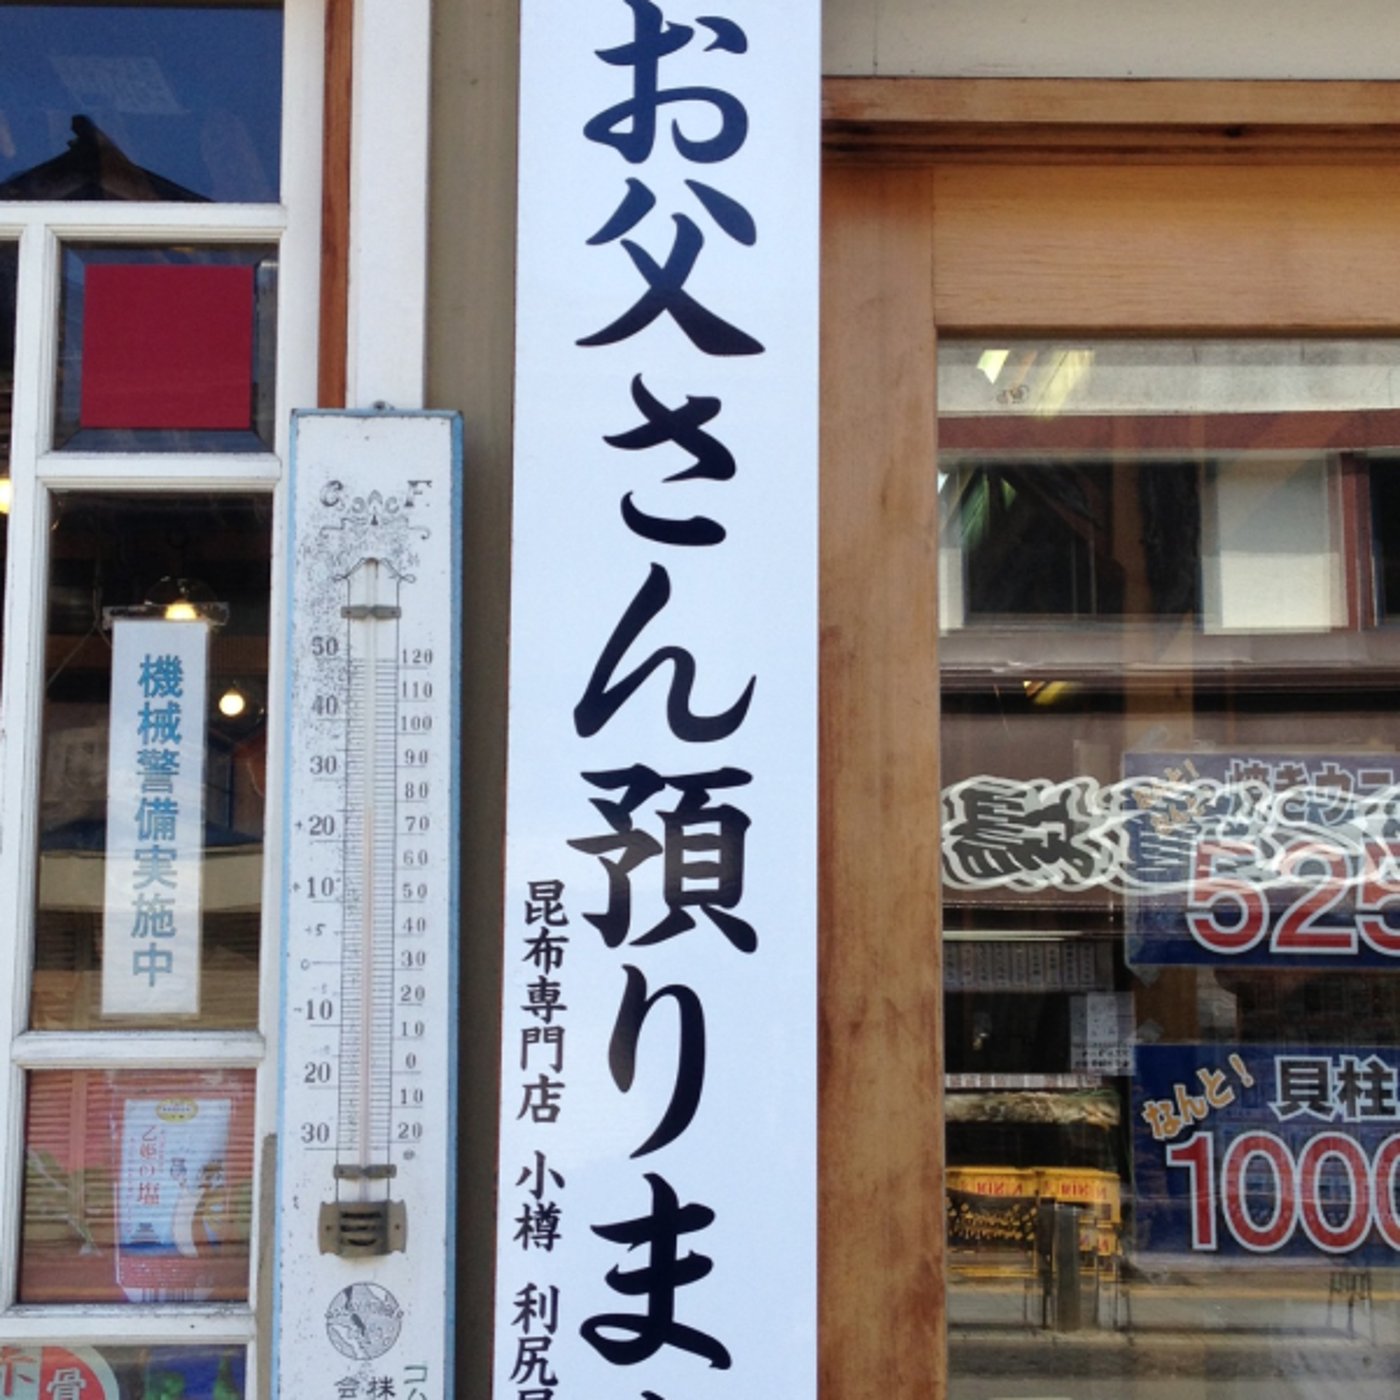 お父さん預りま
昆布専門店 小樽 利尻屋
機械警備実施中
C F
50
40
30
+20
+10
+5
0
-10
20
30
120
110
100
90
80
70
60
50
40
30
20
10
0
10
20
乙姫の塩
焼きウニ
525
なんと!
貝柱
1000
KIRIN
株
会
コ
骨